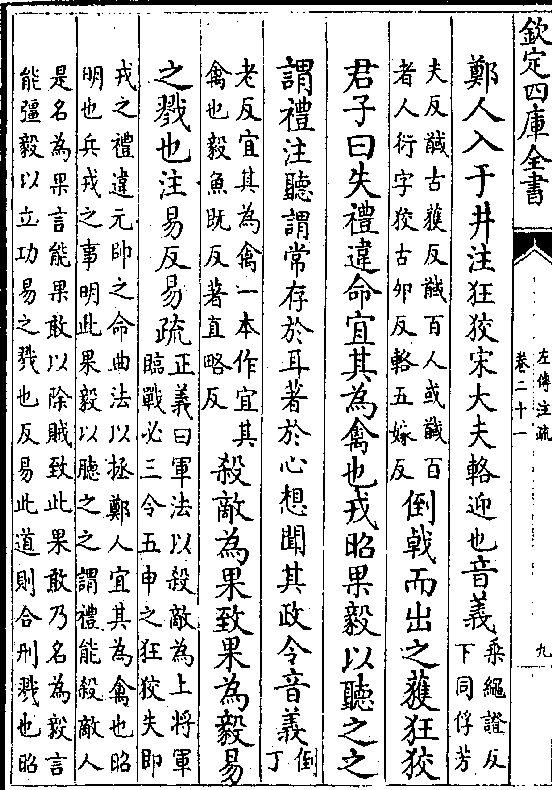 欽定四庫全書
左傳注疏
卷二十一
九
鄭人入于井注狂狡宋大夫輅迎也音義
乘繩證反
下同俘芳
夫反馘古獲反馘百人或馘百
者人衍字狡古卯反輅五嫁反
倒戟而出之獲狂狡
君子曰失禮違命宜其為禽也戎昭果毅以聽之之
謂禮注聽謂常存於耳著於心想聞其政令音義
倒
丁
老反宜其為禽一本作宜其
禽也毅魚既反著直略反
殺敵為果致果為毅易
之戮也注易反易疏
正義曰軍法以殺敵為上將軍
臨戰必三令五申之狂狡失即
戎之禮違元帥之命曲法以拯鄭人宜其為禽也昭
明也兵戎之事明此果毅以聽之之謂禮能殺敵人
是名為果言能果敢以除賊致此果敢乃名為毅言
能彊毅以立功易之戮也反易此道則合刑戮也昭